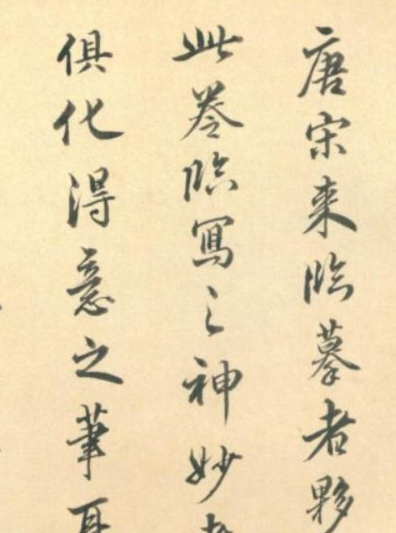 唐宋来临摹者夥
此卷临寫之神妙
俱化得意之筆